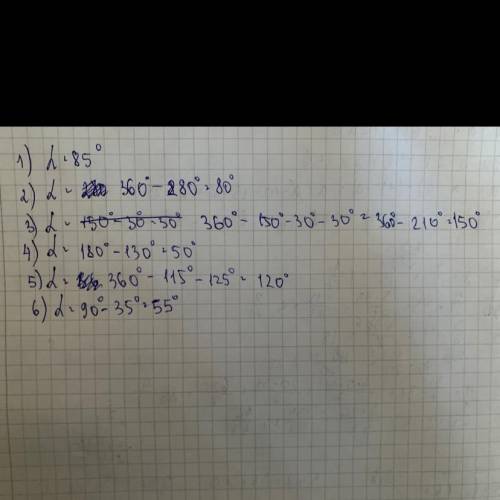 1) α = 85°
2) α = 360° - 280° = 80°
3) α = 150° - 30° - 30° 360° - 150° - 30° - 30° = 360° - 210° = 150°
4) α = 180° - 130° = 50°
5) α = 360° - 115° - 125° = 120°
6) α = 90° - 35° = 55°